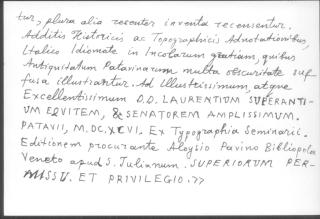 tur, plura alia recenter inventa recensentur.
Additis Histricis ac Topographicis Adnotationibus,
Italico Idiomate in Incolarum gratiam, quibus
Antiquitatum Patavinarum multa obscuritate suf
fusa illustrantur. Ad Illustrissimum, atque
Excellentissimum D.D. LAURENTIUM SUPERANTI-
UM EQVITEM, & SENATOREM AMPLISSIMUM.
PATAVII, M.DC.XCVI. Ex Typographia Seminarii.
Editionem procurante Aloysio Pavino Bibliopola
Veneto apud S. Julianum. SUPERIORUM PER-
MISSU. ET PRIVILEGIO.»